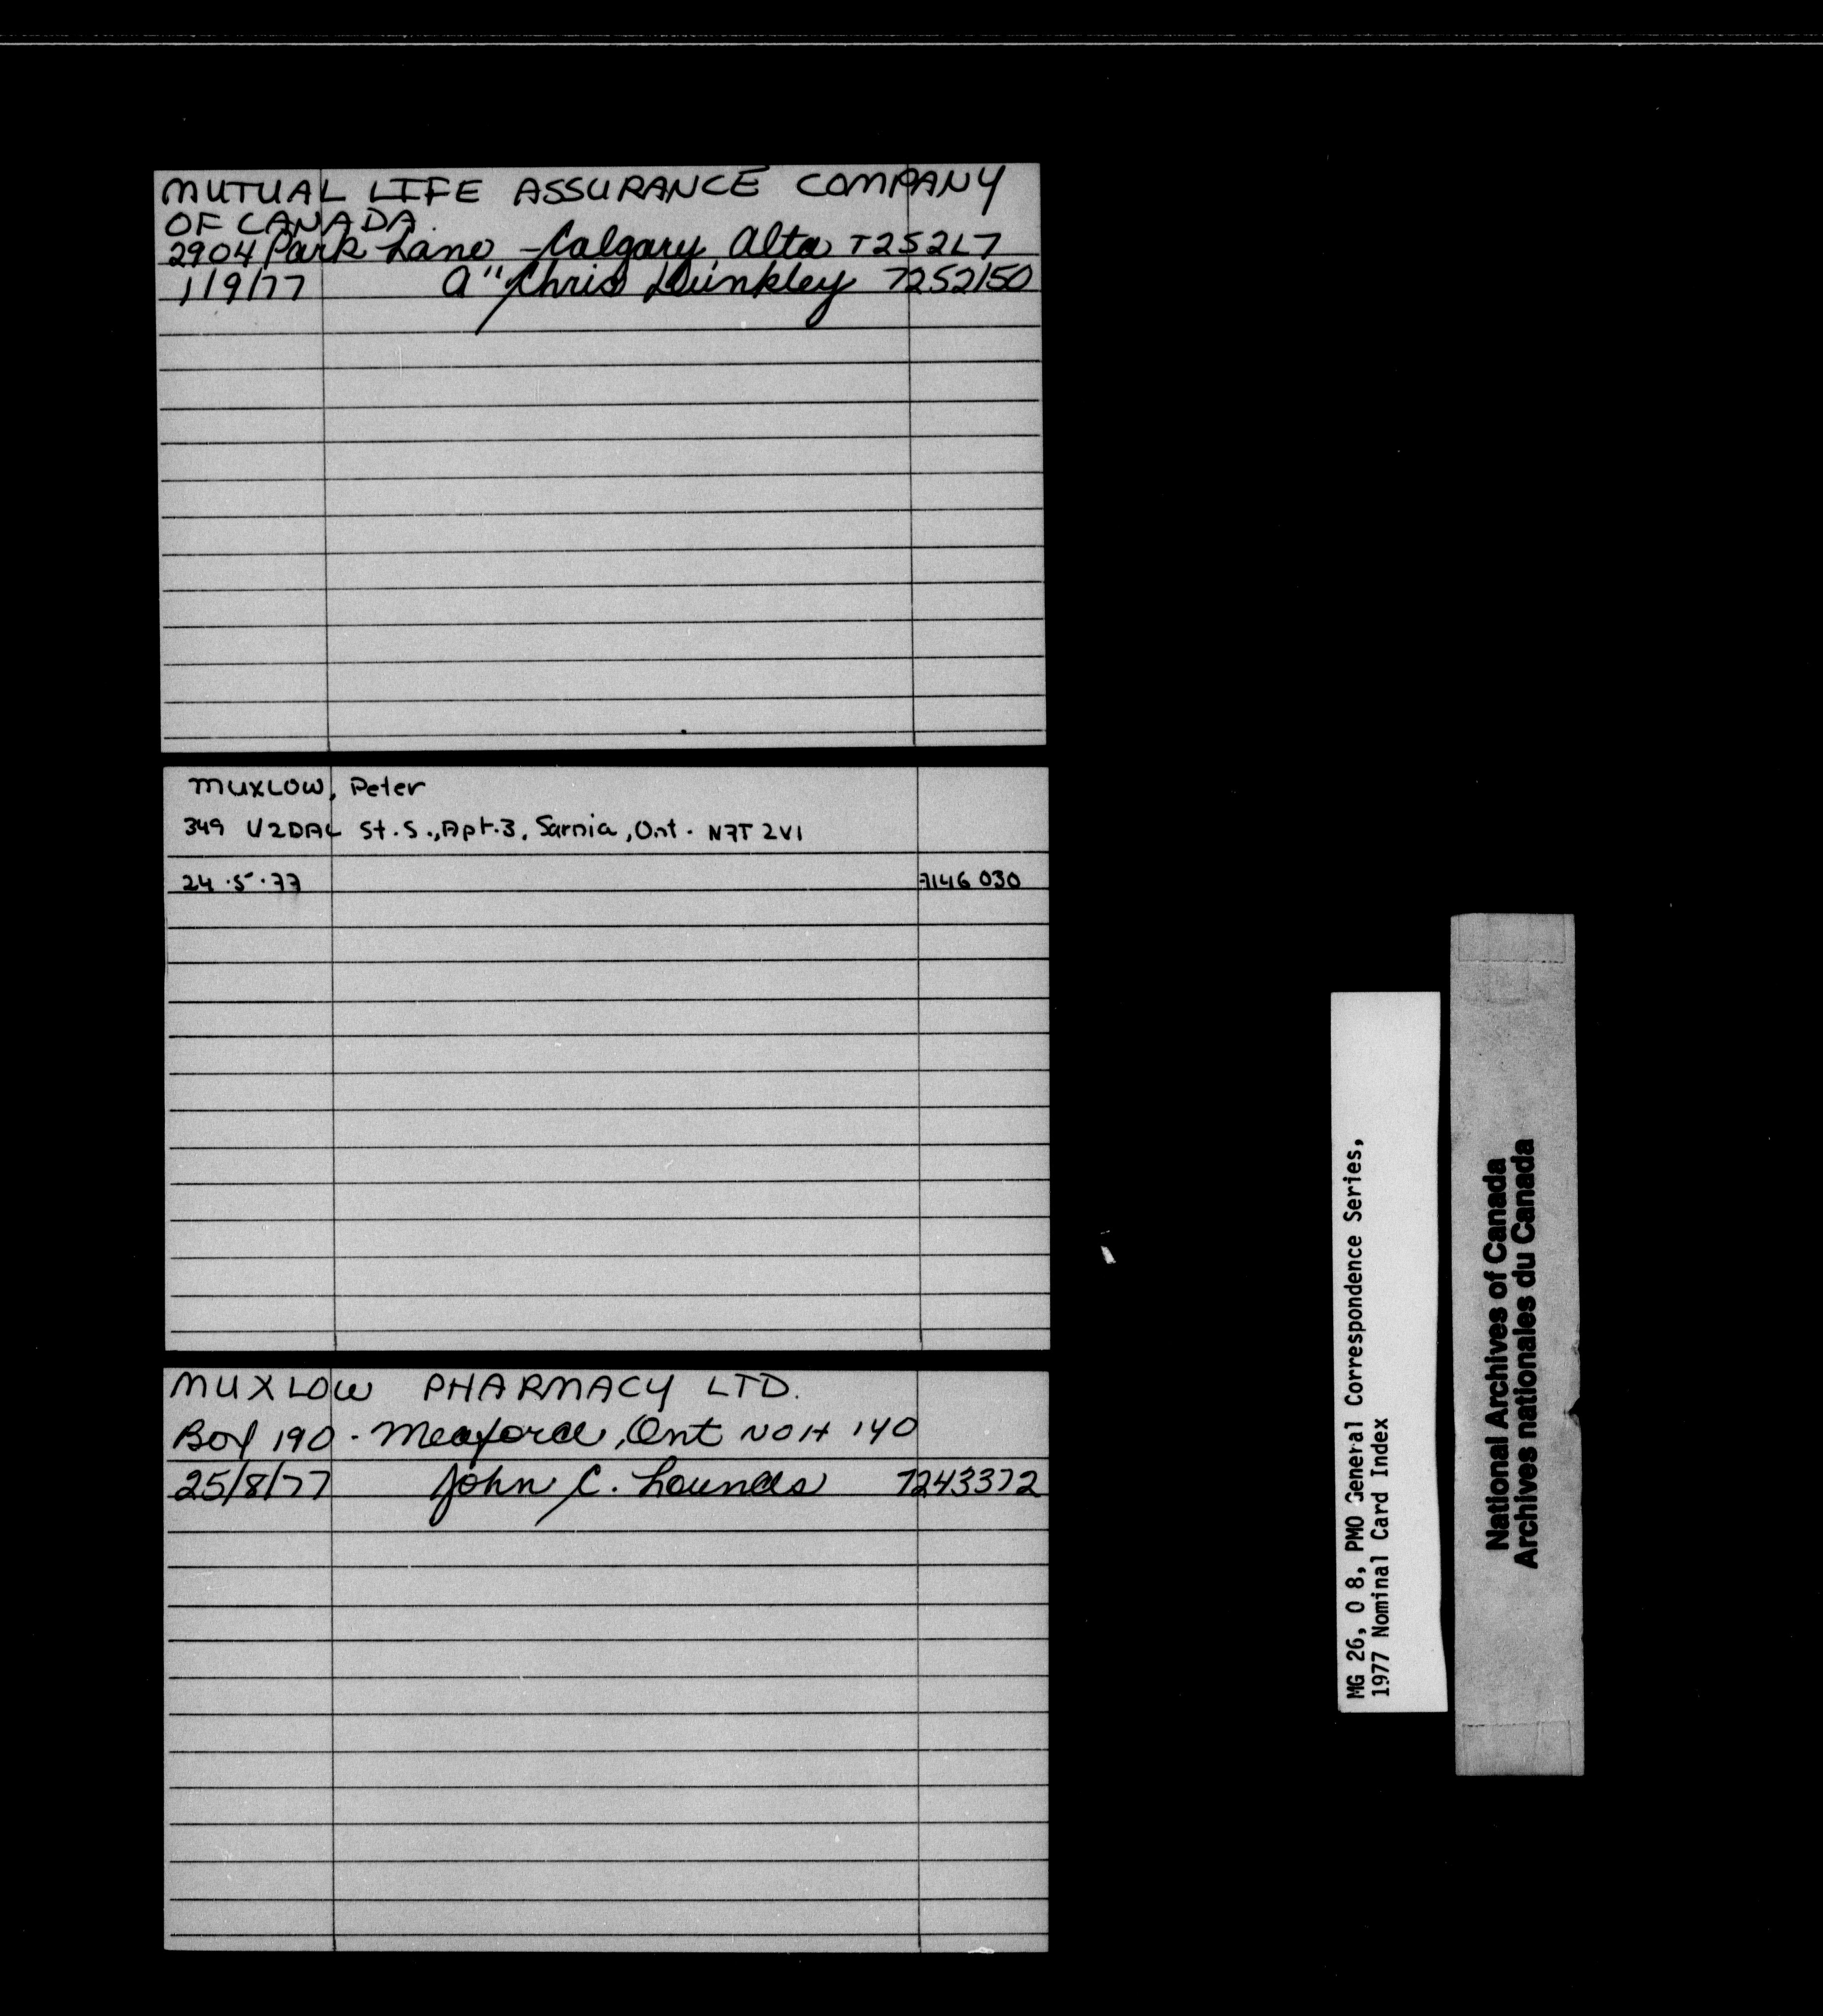 MUTUAL LIFE ASSURANCE COMPANY
OF CANADA.
2904 Park Lane - Calgary, Alta T2S2L7
1/9/77 a" Chris Dunkley 7252150
MUXLOW, Peter
349 UZDAL St. S., Apt. 3, Sarnia, Ont. N7T 2V1
24.5.77 7146 030
MUXLOW PHARMACY LTD.
Box 190 - Meaford, Ont N0H 1Y0
25/8/77 John C. Lounds 7243372
MG 26, O 8, PMO General Correspondence Series,
1977 Nominal Card Index
National Archives of Canada
Archives nationales du Canada